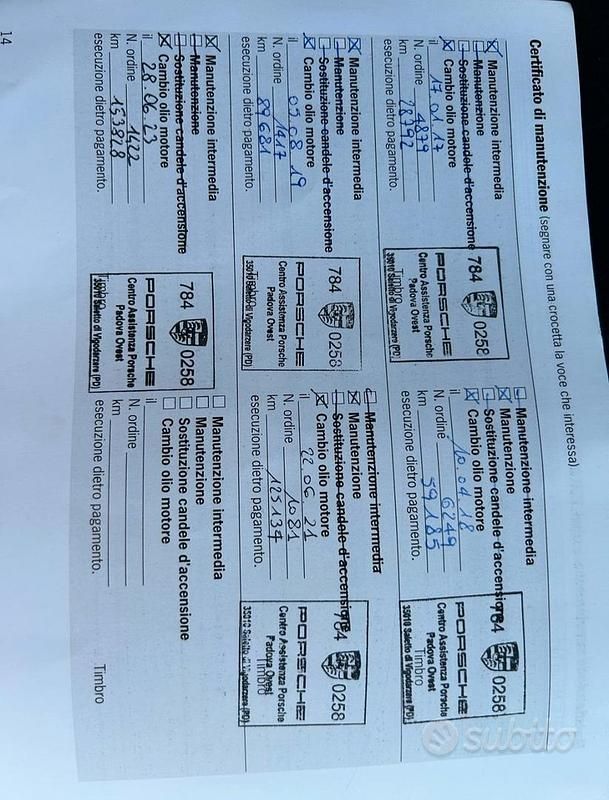 Certificato di manutenzione (segnare con una crocetta la voce che interessa)
Manutenzione intermedia
Manutenzione
Sostituzione candele d'accensione
Cambio olio motore
il 17.01.17
N. ordine 4879
km 28792
esecuzione dietro pagamento.
784 0258
PORSCHE
Centro Assistenza Porsche
Padova Ovest
35010 Saletto di Vigodarzere (PD)
Timbro
Manutenzione intermedia
Manutenzione
Sostituzione candele d'accensione
Cambio olio motore
il 10.04.18
N. ordine 6449
km 59185
esecuzione dietro pagamento.
784 0258
PORSCHE
Centro Assistenza Porsche
Padova Ovest
35010 Saletto di Vigodarzere (PD)
Timbro
Manutenzione intermedia
Manutenzione
Sostituzione candele d'accensione
Cambio olio motore
il 05.08.19
N. ordine 1417
km 89681
esecuzione dietro pagamento.
784 0258
PORSCHE
Centro Assistenza Porsche
Padova Ovest
35010 Saletto di Vigodarzere (PD)
Timbro
Manutenzione intermedia
Manutenzione
Sostituzione candele d'accensione
Cambio olio motore
il 22.06.21
N. ordine 1081
km 125134
esecuzione dietro pagamento.
784 0258
PORSCHE
Centro Assistenza Porsche
Padova Ovest
35010 Saletto di Vigodarzere (PD)
Timbro
Manutenzione intermedia
Manutenzione
Sostituzione candele d'accensione
Cambio olio motore
il 28.06.23
N. ordine 1422
km 153828
esecuzione dietro pagamento.
784 0258
PORSCHE
Centro Assistenza Porsche
Padova Ovest
35010 Saletto di Vigodarzere (PD)
Timbro
Manutenzione intermedia
Manutenzione
Sostituzione candele d'accensione
Cambio olio motore
il
N. ordine
km
esecuzione dietro pagamento.
Timbro
14
subito